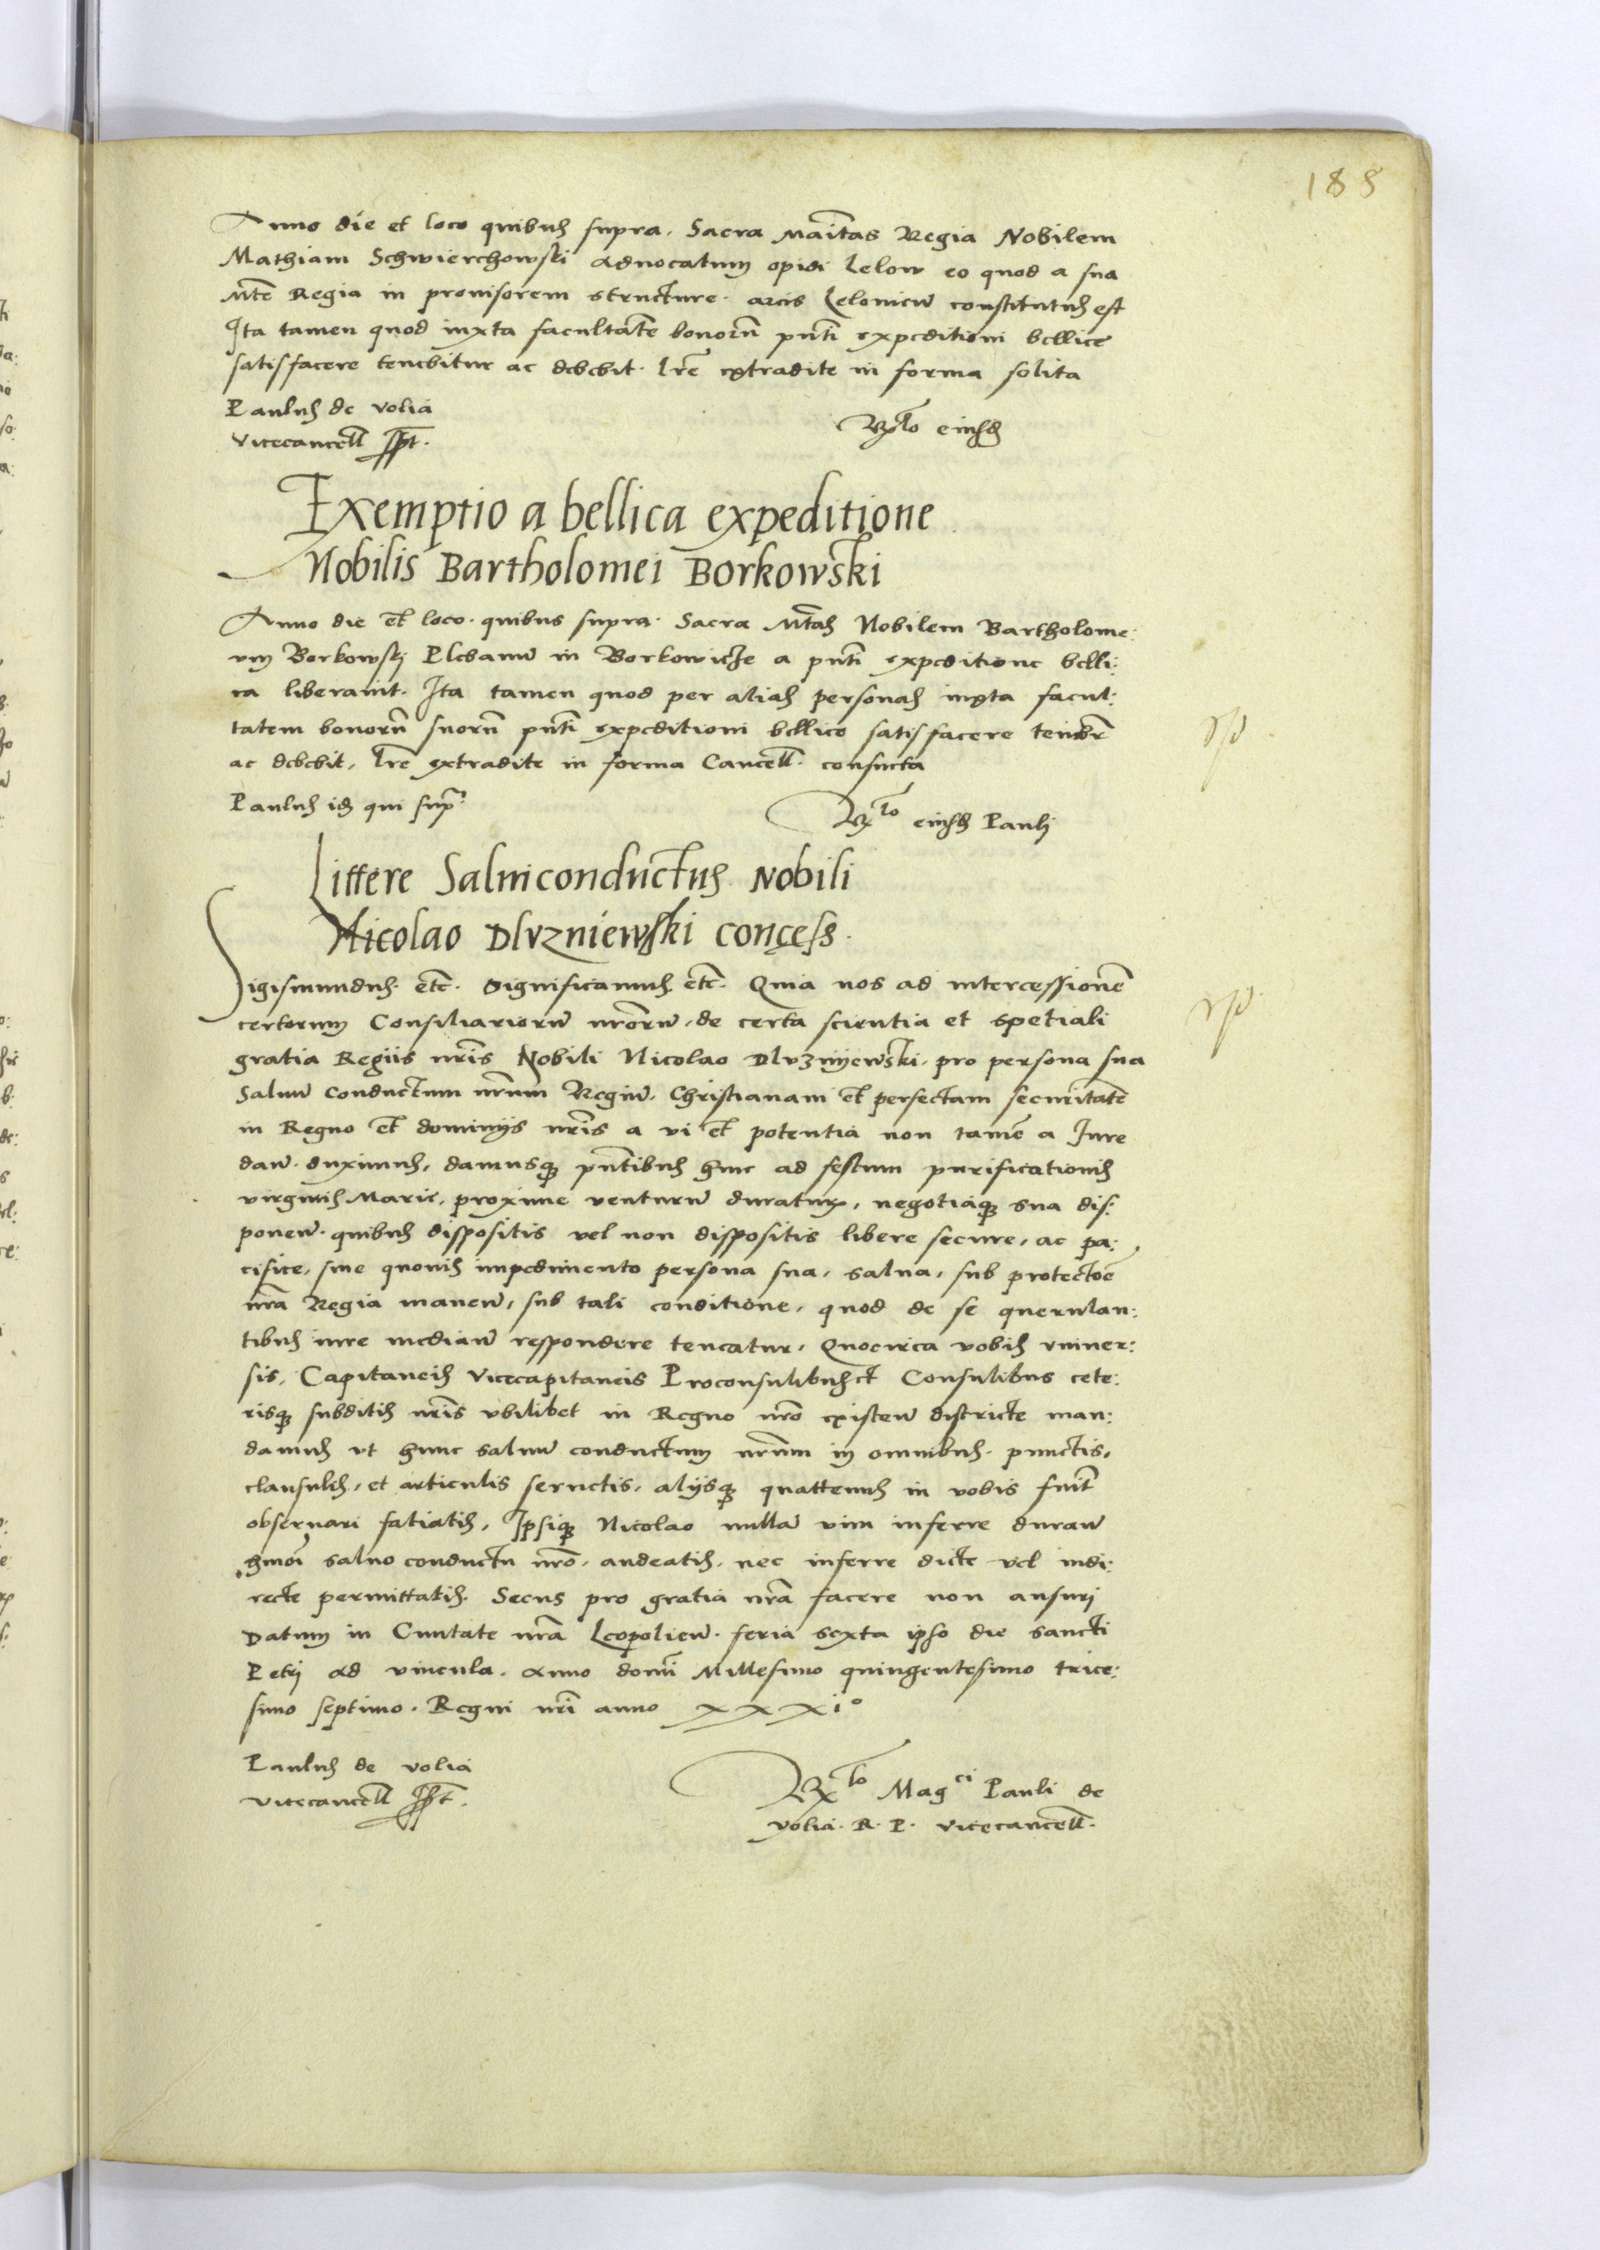 188
Anno die et loco quibus supra. Sacra Maiẽtas Regia Nobilem
Mathiam Schwierchowski advocatum opidi Lelow eo quod a sua
Mte Regia in provisorem structure arcis Lelovieñ constitutus est
Ita tamen quod iuxta facultatẽ bonorũ pñti expeditioni bellice
satisfacere tenebitur ac debebit. lrẽ extradite in forma solita
Paulus de volia
vicecancell sspt.
Rlo eiusd
Exemptio a bellica expeditione
Nobilis Bartholomei Borkowski
Anno die et loco quibus supra. Sacra Mtas Nobilem Bartholome:
um Borkowski Plebanũ in Borkowicze a pñti expeditione belli:
ca liberavit. Ita tamen quod per alias personas iuxta facul:
tatem bonorũ suorũ pñti expeditioni bellice satisfacere tenebr
ac debebit, lrẽ extradite in forma Cancell. consueta
Paulus id qui supr
Rlo eiusd Pauli
Littere Salviconductus Nobili
Nicolao Dluzniewski concess.
Sigismundus etc. Significamus etc. Quia nos ad intercessionẽ
certorum Consiliariorũ nrõrũ, de certa scientia et spetiali
gratia Regiis nrĩs Nobili Nicolao Dluznyewski pro persona sua
Salvũ conductum nrũm Regiũ, Christianam et perfectam securitatẽ
in Regno et dominijs nrĩs a vi et potentia non tamẽ a Iure
dañ duximus, damusqȝ pñtibus hinc ad festum purificationis
virginis Marie, proxime venturũ duratur, negotiaqȝ sua dis:
poneñ quibus dispositis vel non dispositis libere secure, ac pa:
cifice, sine quovis impedimento persona sua, salva, sub protectoẽ
nrã Regia maneñ, sub tali conditione, quod de se querulan:
tibus iure mediañ respondere teneatur, Quocirca vobis univer:
sis, Capitaneis Vicecapitaneis Proconsulibus et Consulibus cete:
risqȝ subditis nrĩs ubilibet in Regno nrõ existeñ districte man:
damus ut hunc salvũ conductum nrũm in omnibus punctis,
clausulis, et articulis servetis, alijsqȝ quattenus in vobis fuit
observari fatiatis, Ipsiqȝ Nicolao nullã vim inferre durañ
hmõi salvo conductu nrõ, audeatis, nec inferre dicte vel indi:
recte permittatis. Secus pro gratia nrã facere non ausuri
Datum in Civitate nrã Leopolieñ feria sexta ipso die sancti
Petri ad vincula. Anno domĩ Millesimo quingentesimo trice:
simo septimo. Regni nrĩ anno XXXIº
Paulus de volia
vicecancell sspt.
Rlo Magci Pauli de
volia. R. P. vicecancell.